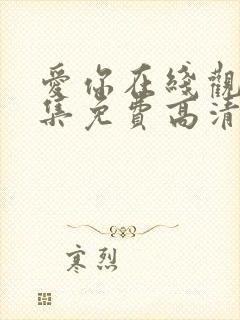 愛你在綫觀
集免費高清
寒烈